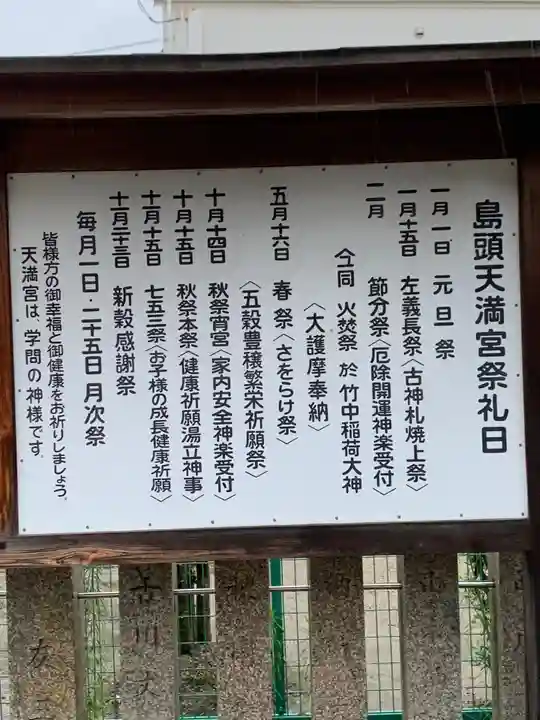 島頭天満宮祭礼日
一月一日 元旦祭
一月十五日 左義長祭〈古神札焼上祭〉
二月 節分祭〈厄除開運神楽受付〉
今同 火焚祭 於 竹中稲荷大神
〈大護摩奉納〉
五月十六日 春祭〈さをらけ祭〉
〈五穀豊穣繁栄祈願祭〉
十月十四日 秋祭宵宮〈家内安全神楽受付〉
十月十五日 秋祭本祭〈健康祈願湯立神事〉
十一月十五日 七五三祭〈お子様の成長健康祈願〉
十一月二十三日 新穀感謝祭
毎月一日・二十五日月次祭
皆様方の御幸福と御健康をお祈りしましょう。
天満宮は、学問の神様です。